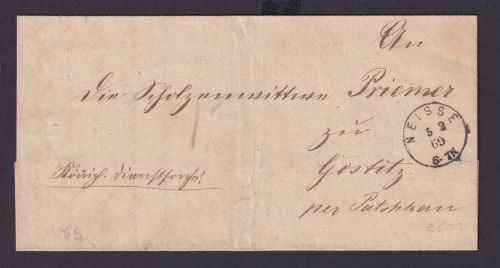 An
Die Scholzenwittwe Priemer
zu
NEISSE
5 2
69
6-7N
Göstitz
Königl. Dienstsache!
per Patschkau
1869